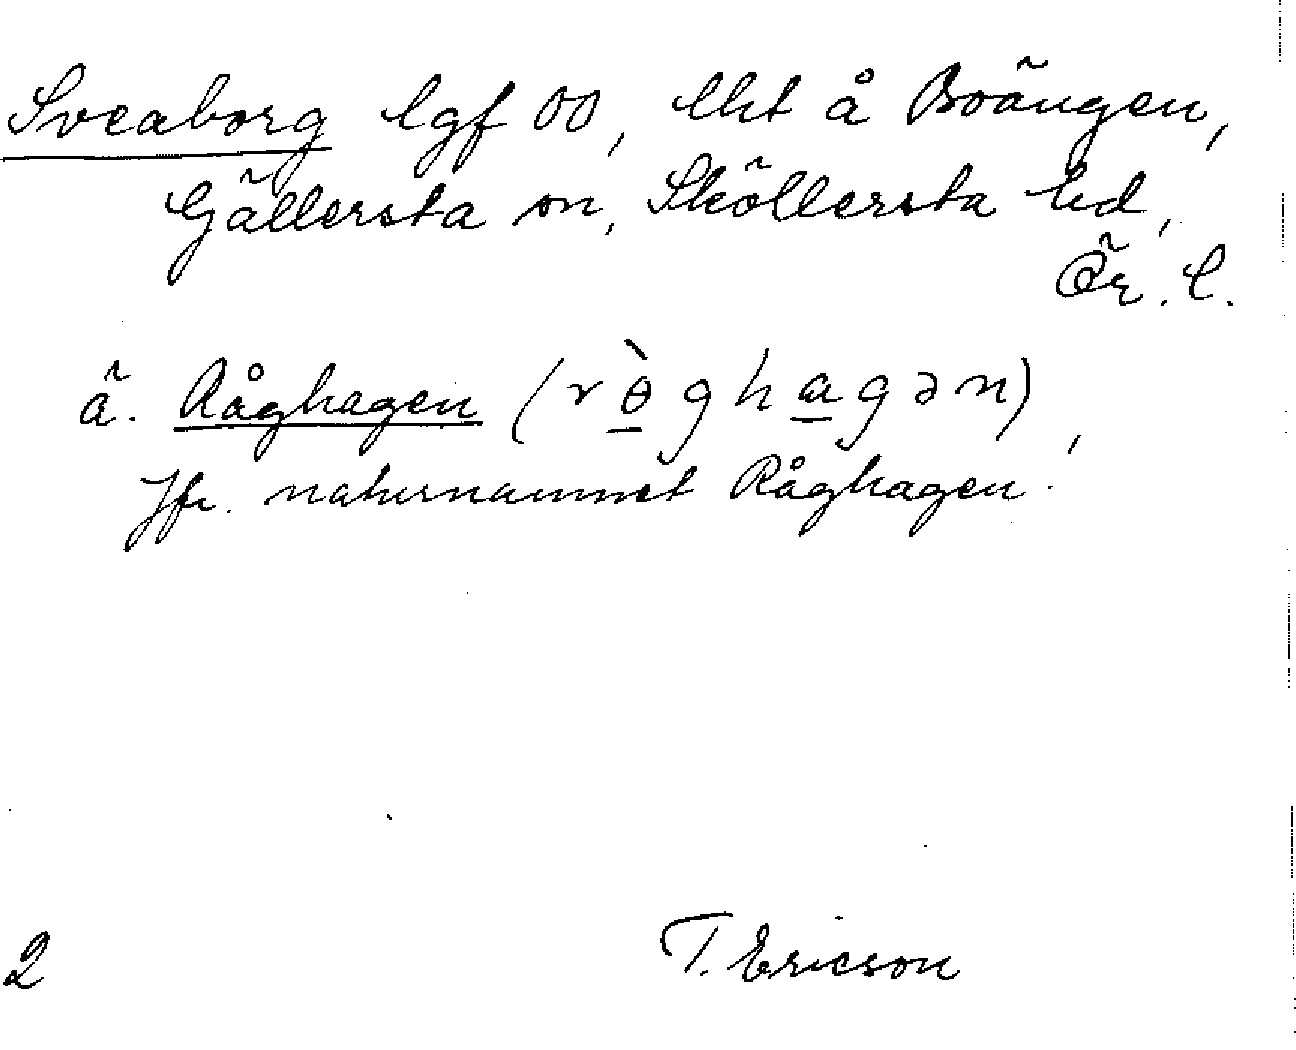 Sveaborg lgf 00, lht å Boängen,
Gällersta sn, Sköllersta hd,
Ör. l.
ä. Råghagen (rɵ̠̀gha̠gən),
Jfr. naturnamnet Råghagen.
2 T. Ericson